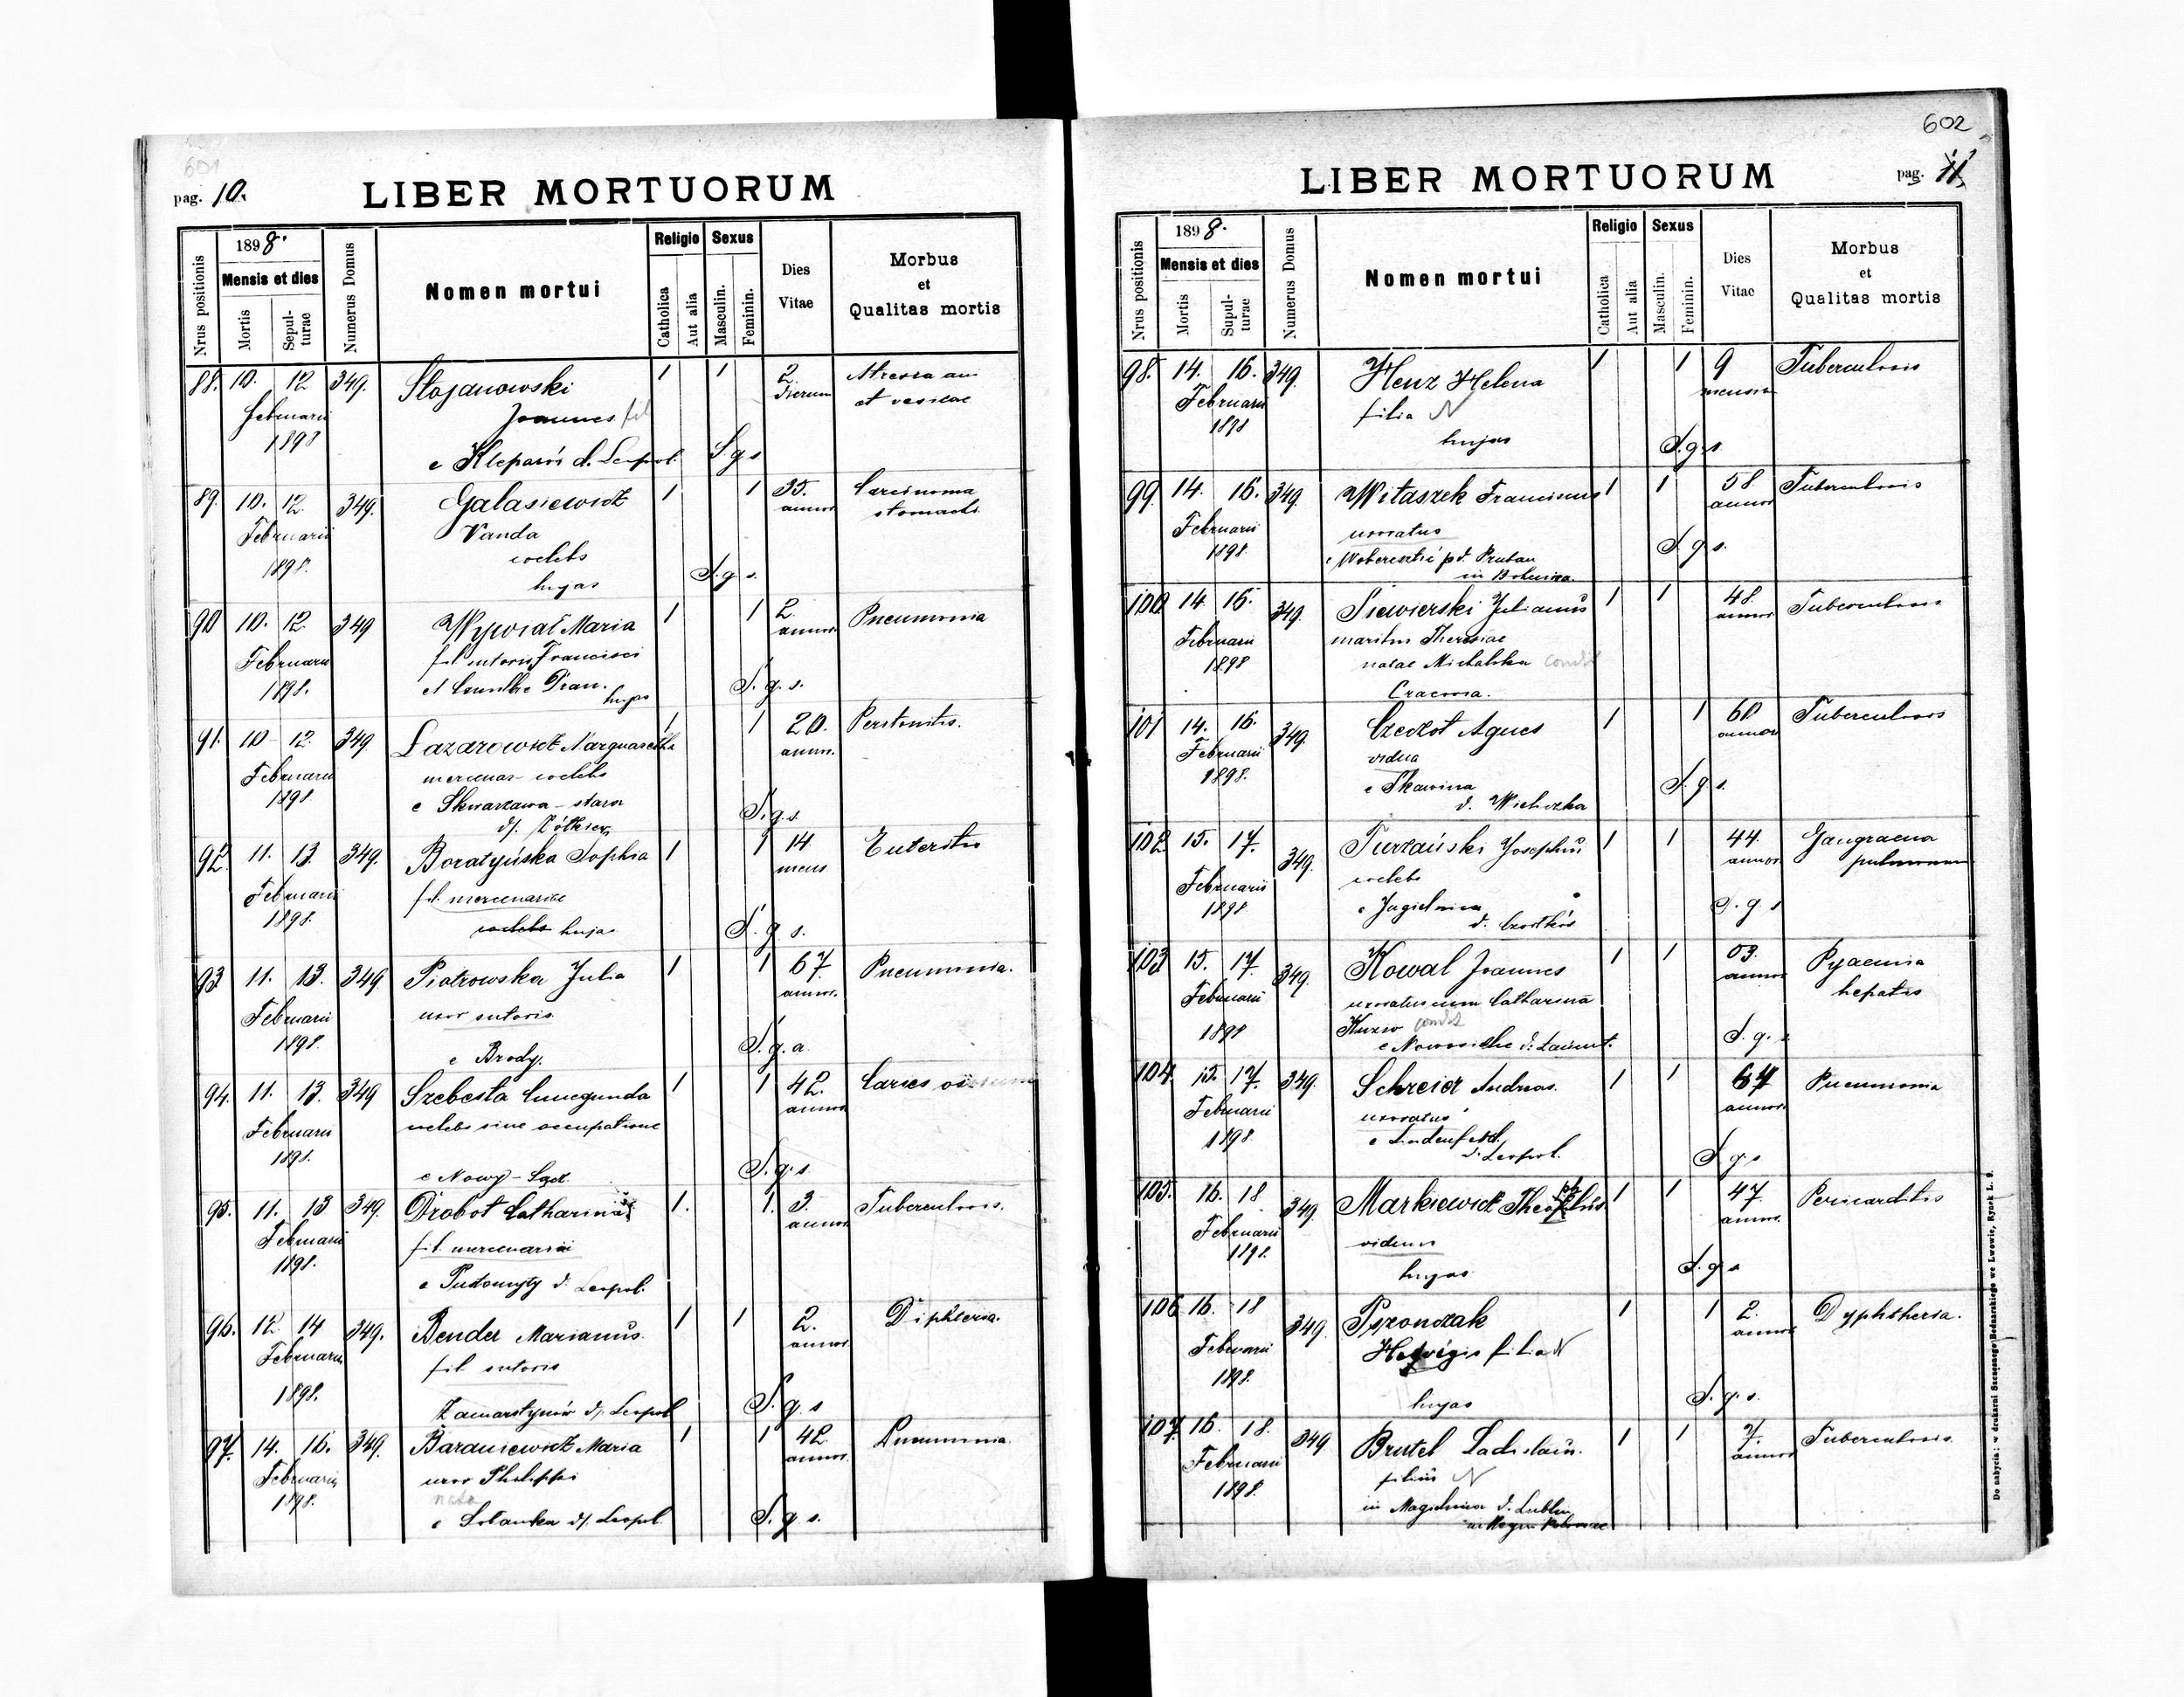 601
pag. 10.
LIBER MORTUORUM
Nrus positionis
1898.
Mensis et dies
Mortis
Sepul-
turae
Numerus Domus
Nomen mortui
Religio
Catholica
Aut alia
Sexus
Masculin.
Feminin.
Dies
Vitae
Morbus
et
Qualitas mortis
88. 10. 12 349. Stojanowski 1 1 2. et vesicae
Februarii Joannes fil dierum
1898 e Kleparów d. Leopol. S g s
89. 10. 12. 349. Galasiewicz 1 1 35. Carcinoma
Februarii Vanda annor stomachi
1898. coelebs
hujas S. g s.
90 10. 12. 349 Wywiał Maria 1 1 2. Pneumonia
Februarii fil sutoris Francisci annor
1898. et hujas S. g. s.
91. 10 12. 349 Lazarowicz Marguaretha 1 1 20. Peritonitis.
Februarii coelebs annor.
1898 e Skwarzawa - stara S. g s
d/. Żółkiew
92. 11. 13. 349. Boratyńska Sophia 1 1 14. Enteritis
Februarii fil. mercenariae mens
1898. coelebs hujas S. g s.
93 11. 13. 349 Piotrowska Julia 1 1 67. Pneumonia.
Februarii uxor sutoris annor.
1898. e Brody. S. g. a
94. 11. 13. 349 Szebesta Cunegunda 1 1 42. Caries ossium
Februarii coelebs sine occupatione annor
1898.
e Nowy - Sącz. S. g. s
95. 11. 13 349. Drobot Catharina 1. 1. 3. Tuberculosis.
Februarii fil mercenarii annor
1898.
e Pustomyty d. Leopol.
96. 12. 14 349. Bender Marianus. 1 1 2. Diphteria.
Februarii fil sutoris annor
1898. Zamarstynów d/. Leopol S. g s
97. 14. 16. 349. Baraniewicz Maria 1 1 42. Pneumonia.
Februarii uxor Philippi annor
1898. nata
e d/. Leopol. S. g s.
602
LIBER MORTUORUM
pag. 11.
Nrus positionis
1898.
Mensis et dies
Mortis
Supul-
turae
Numerus Domus
Nomen mortui
Religio
Catholica
Aut alia
Sexus
Masculin.
Feminin.
Dies
Vitae
Morbus
et
Qualitas mortis
98. 14. 16. 349. Henz Helena 1 1 9 Tuberculosis
Februarii filia N mensium
1898 hujas S. g. s
99. 14. 16. 349. Witaszek Franciscus 1 1 58. Tuberculosis
Februarii uxoratus annor
1898. S. g s.
100 14 16. 349. Siewierski Julianus 1 1 48. Tuberculosis
Februarii maritus Theresiae annor
1898 natae Michalska
Cracovia.
101 14. 16. 349. Czeczot Agnes 1 1 60 Tuberculosis
Februarii vidua annor
1898. e Skawina S. g. s.
d. Wieliczka
102 15. 17. 349. Turzański Josephus 1 1 44. Gangraena
Februarii coelebs annor pulmonum
1898 e Jagielnica S. g. s
d. Czortków
103 15. 17. 349. Kowal Joannes 1 1 53. Pyaemia
Februarii uxoratus cum Catharina annor hepatis
1898 e Nowosielce d. Łańcut. S. g. s
104 15. 17. 349. Schreier Andreas. 1 1 67 Pneumonia
Februarii uxoratus annor
1898. e Lindenfeld. S g s
d. Leopol.
105. 16. 18 349. Markiewicz Theophilus 1 1 47. Pericarditis
Februarii viduus annor.
1898. hujas S. g s
106 16. 18 349. Pyzonczak 1 1 2. Dyphtheria.
Februarii Hedvigis filia N annor
1898. hujas S. g. s.
107. 16. 18. 349 Brutel Ladislaus. 1 1 7. Tuberculosis.
Februarii filius N annor
1898. in d. Lublin
in Regno Poloniae
Do nabycia: w drukarni Szczęsnego Bednarskiego we Lwowie, Rynek L. 9.